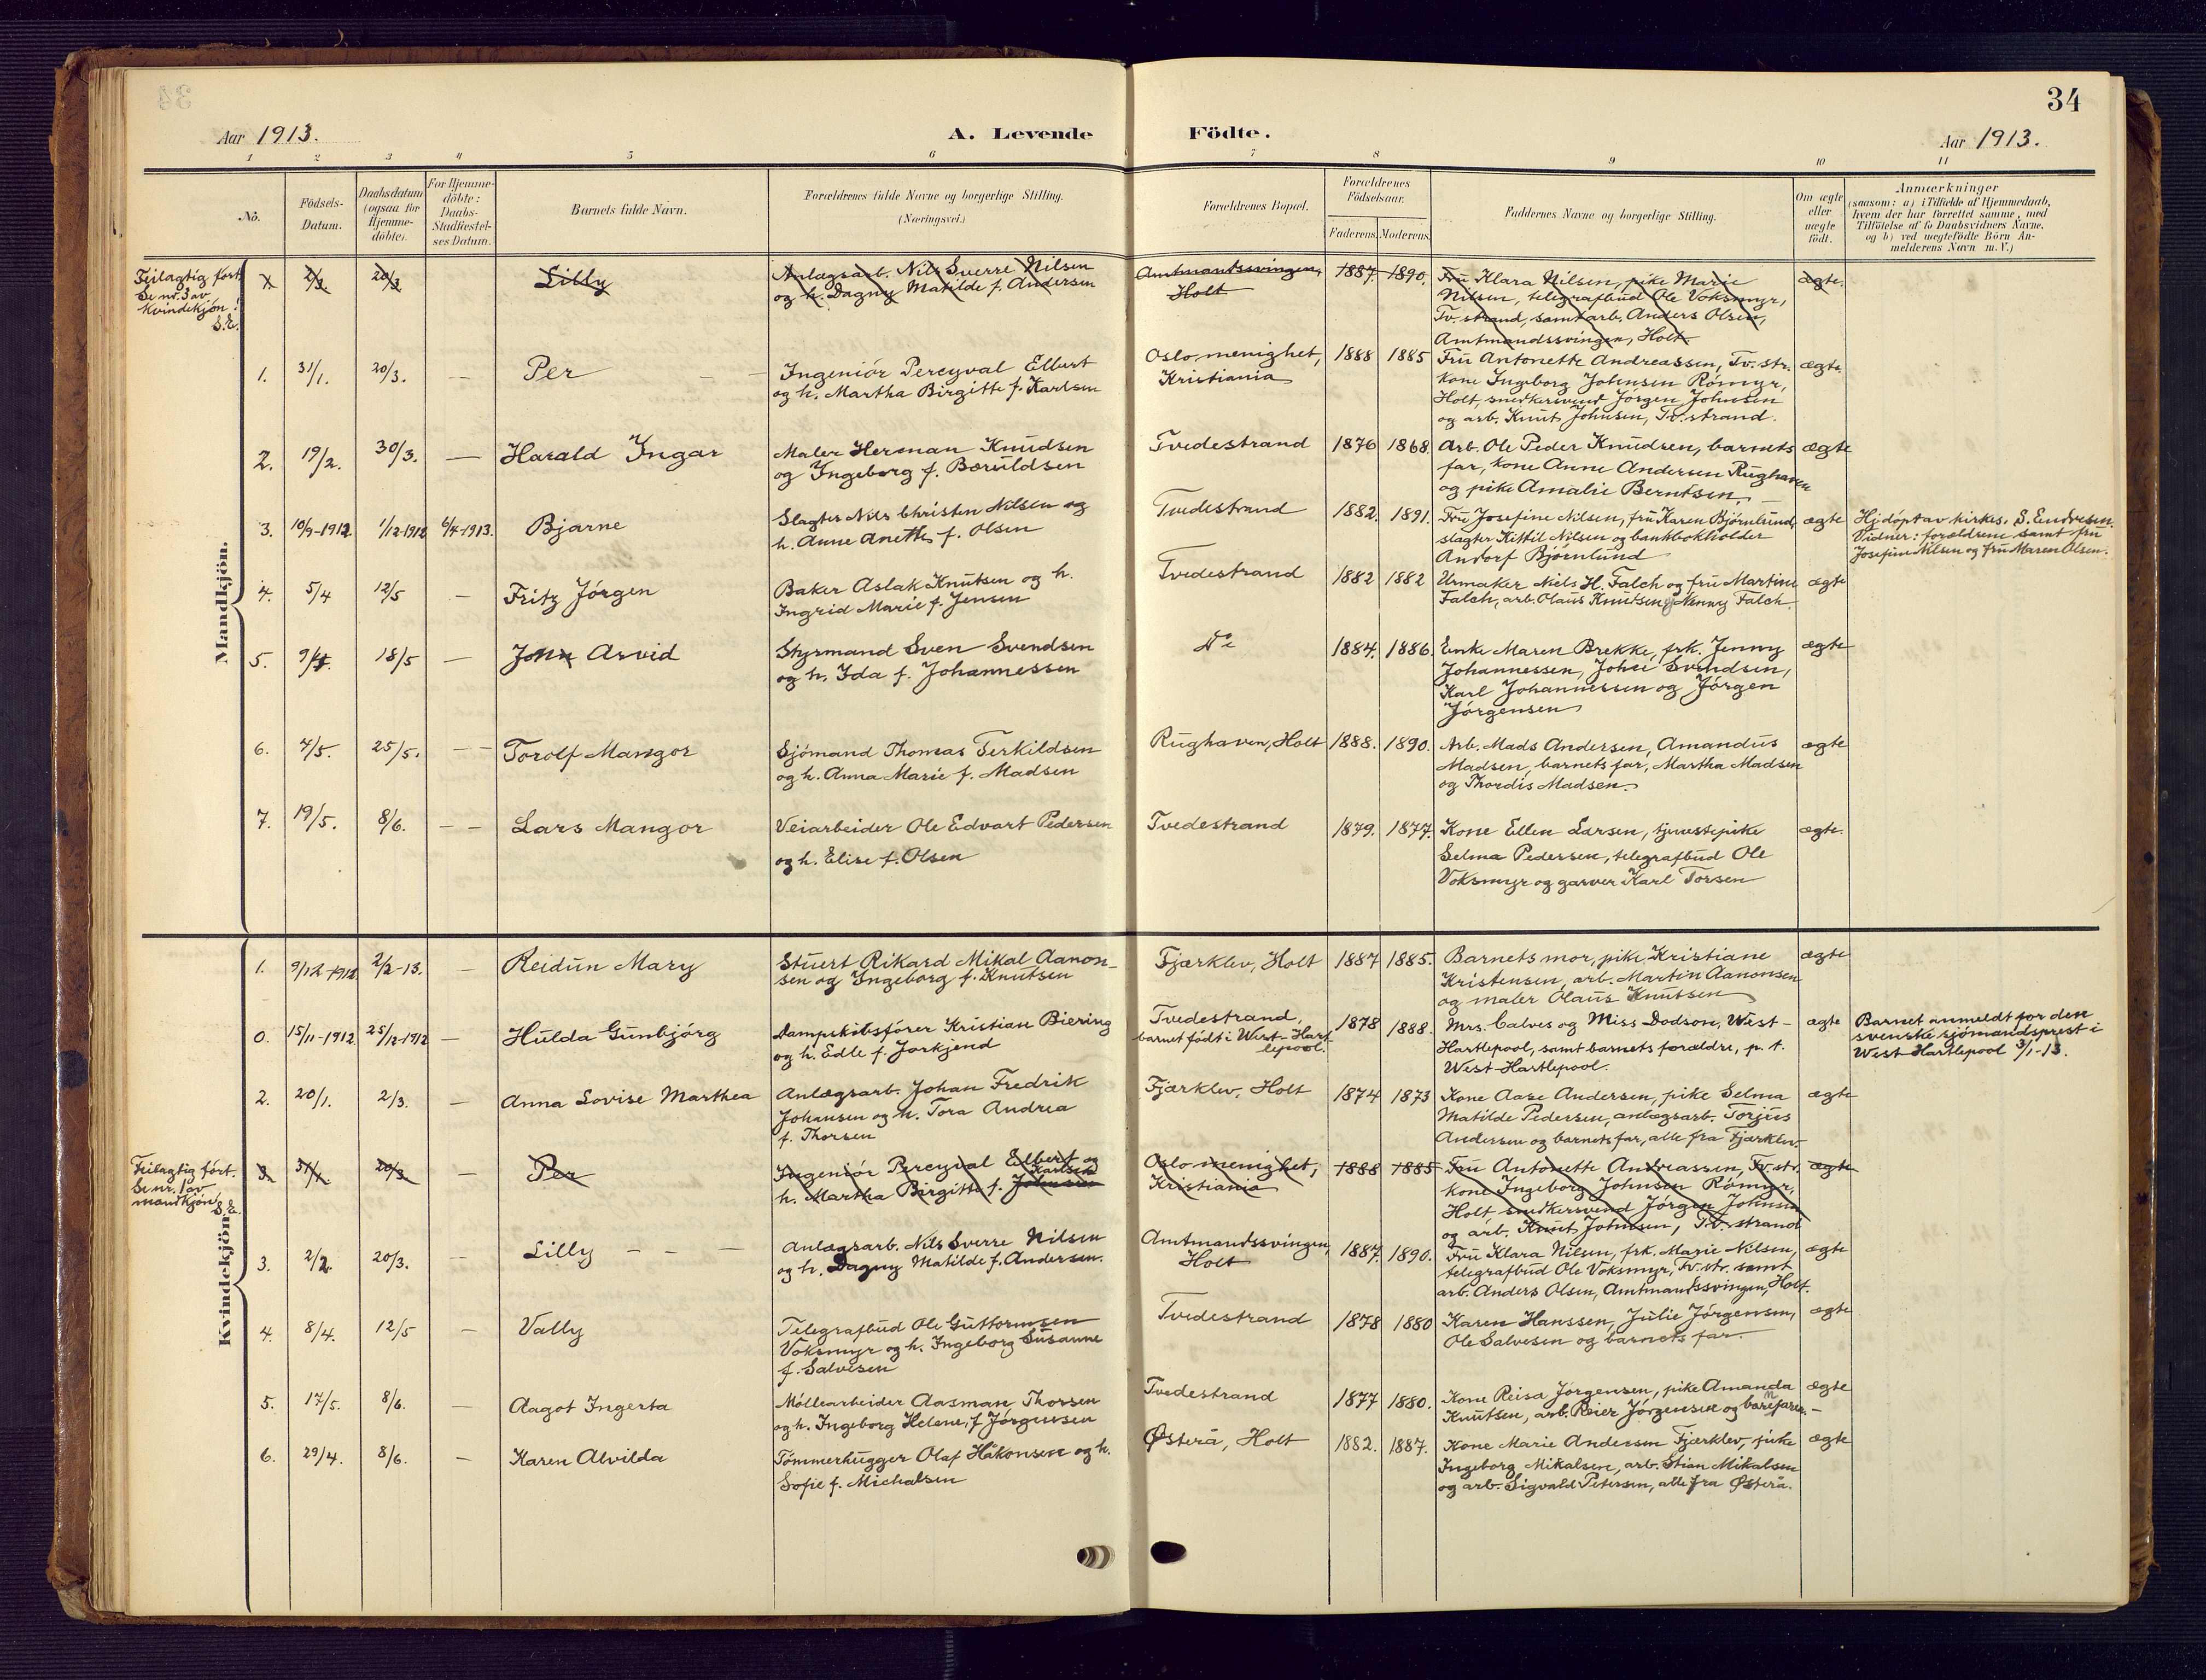 34
Aar 1913.
A. Levende Födte.
Aar 1913.
1 2 3 4 5 6 7 8 9 10 11
No.
Födsels-
Datum.
Daabsdatum
(ogsaa for
Hjemme-
döbte).
For Hjemme-
döbte:
Daabs-
Stadfæstel-
ses Datum.
Barnets fulde Navn.
Forældrenes fulde Navne og borgerlige Stilling.
(Næringsvei.)
Forældrenes Bopæl.
Forældrenes
Födselsaar.
Faderens. Moderens.
Faddernes Navne og borgerlige Stilling.
Om ægte
eller
uægte
födt.
Anmærkninger
(saasom: a) i Tilfælde af Hjemmedaab,
hvem der har forrettet samme, med
Tilföielse af to Daabsvidners Navne,
og b) ved uægtefödte Börn An-
melderens Navn m. V.)
Mandkjön.
Feilagtig fört
Se nr. 3 av
kvindekjön!
S.E.
2/3. 20/3 Lilly
Anlægsarb. Nils Sverre Nilsen
og h. Dagny Matilde f. Andersen
Amtmantssvingen,
Holt
1887. 1890.
Fru Klara Nilsen, pike Marie
Nilsen, telegrafbud Ole Voksmyr,
Tv.strand, samt arb. Anders Olsen,
Amtmandssvingen, Holt.
ægte.
1. 31/1. 20/3. — Per
Ingeniör Percyval Elbert
og h. Martha Birgitte f. Karlsen
Oslo menighet,
Kristiania
1888 1885
Fru Antonette Andreassen, Tv. str.
kone Ingeborg Johnsen Römyr,
Holt, snedkersvend Jörgen Johnsen
og arb. Knut Johnsen, Tv.strand.
ægte.
2. 19/2. 30/3. — Harald Ingar
Maler Herman Knudsen
og Ingeborg f. Bæruldsen
Tvedestrand
1876 1868.
Arb. Ole Peder Knudsen, barnets
far, kone Anne Andersen Rughaven
og pike Amalie Berntsen.
ægte
3. 10/9-1912 1/12-1912 6/4-1913. Bjarne
Slagter Nils Christen Nilsen og
h. Anne Anette f. Olsen
Tvedestrand
1882. 1891.
Fru Josefine Nilsen, fru Karen Björnlund,
slagter Kittil Nilsen og bankbokholder
Andorf Björnlund
ægte
Hj.döpt av kirkes. S. Endresen.
Vidner: forældrene samt fru
Josefine Nilsen og fru Maren Olsen.
4. 5/4 12/5 — Fritz Jörgen
Baker Aslak Knutsen og h.
Ingrid Marie f. Jensen
Tvedestrand
1882 1882
Urmaker Niels H. Falch og fru Martine
Falch, arb. Olaus Knutsen og Nenny Falch
ægte
5. 18/5 — Arvid
Styrmand Sven Svendsen
og h. Ida f. Johannessen
Do
1884. 1886.
Enke Maren Brekke, frk. Jenny
Johannessen, Johei Svendsen,
Karl Johannessen og Jörgen
Jörgensen
ægte
6. 4/5. 25/5. — Torolf Mangor
Sjömand Thomas Terkildsen
og h. Anna Marie f. Madsen
Rughaven, Holt
1888. 1890.
Arb. Mads Andersen, Amandus
Madsen, barnets far, Martha Madsen
og Thordis Madsen.
ægte
7. 19/5. 8/6. — Lars Mangor
Veiarbeider Ole Edvart Pedersen
og h. Elise f. Olsen
Tvedestrand
1879. 1877.
Kone Ellen Larsen, tjenestepike
Selma Pedersen, telegrafbud Ole
Voksmyr og garver Karl Torsen
ægte.
Kvindekjön
1. 9/12-1912 2/2-13. — Reidun Mary
Stuert Rikard Mikal Aanon-
sen og Ingeborg f. Knutsen
Fjærklev, Holt
1887 1885.
Barnets mor, pike Kristiane
Kristensen, arb. Martin Aanonsen
og maler Olaus Knutsen
ægte
0. 15/11-1912 25/12-1912 — Hulda Gunbjörg
Dampskibsförer Kristian Biering
og h. Edle f. Jorkjend
Tvedestrand,
barnet födt i West-Hart
lepool.
1878 1888.
Mrs. Calves og Miss Dodson, West-
Hartlepool, samt barnets forældre, p. t.
West-Hartlepool.
ægte
Barnet anmeldt for den
svenske sjömandsprest i
West Hartlepool 3/1-13.
2. 20/1. 2/3. — Anna Lovise Marthea
Anlægsarb. Johan Fredrik
Johansen og h. Tora Andrea
f. Thorsen
Fjærklev, Holt
1874 1873
Kone Aase Andersen, pike Selma
Matilde Pedersen, anlægsarb. Torjus
Andersen og barnets far, alle fra Fjærklev.
ægte
Feilagtig fört.
Se nr. 1 av
mandkjön!
S.E.
3. 31/1. 20/3. — Per
Ingeniör Percyval Elbert og
Karlsen
h. Martha Birgitte f. Johnsen
Oslo menighet,
Kristiania
1888 1885
Fru Antonette Andreassen, Tv. str.
kone Ingeborg Johnsen Römyr,
Holt snedkersvend Jörgen Johnsen
og arb. Knut Johnsen, Tv. strand
ægte
3. 2/2. 20/3. — Lilly
Anlægsarb. Nils Sverre Nilsen
og h. Dagny Matilde f. Andersen.
Amtmandssvingen,
Holt
1887. 1890.
Fru Klara Nilsen, frk. Marie Nilsen,
telegrafbud Ole Voksmyr, Tv. str. samt
arb. Anders Olsen, Amtmantssvingen, Holt.
ægte
4. 8/4. 12/5 — Vally
Telegrafbud Ole Guttormsen
Voksmyr og h. Ingeborg Susanne
f. Salvesen
Tvedestrand
1878 1880
Karen Hanssen, Julie Jörgensen,
Ole Salvesen og barnets far.
ægte
5. 17/5. 8/6. — Aagot Ingerta
Möllearbeider Aasman Thorsen
og h. Ingeborg Helene, f. Jörgensen
Tvedestrand
1877 1880.
Kone Reisa Jörgensen, pike Amanda
Knutsen, arb. Reier Jörgensen og
ægte
6. 29/4. 8/6. — Karen Alvilda
Tömmerhugger Olaf Håkonsen og h.
Sofie f. Michalsen
Østerå, Holt
1882. 1887.
Kone Marie Andersen Fjærklev, pike
Ingeborg Mikalsen, arb. Stian Mikalsen
og arb. Sigvald Petersen, alle fra Østerå.
ægte